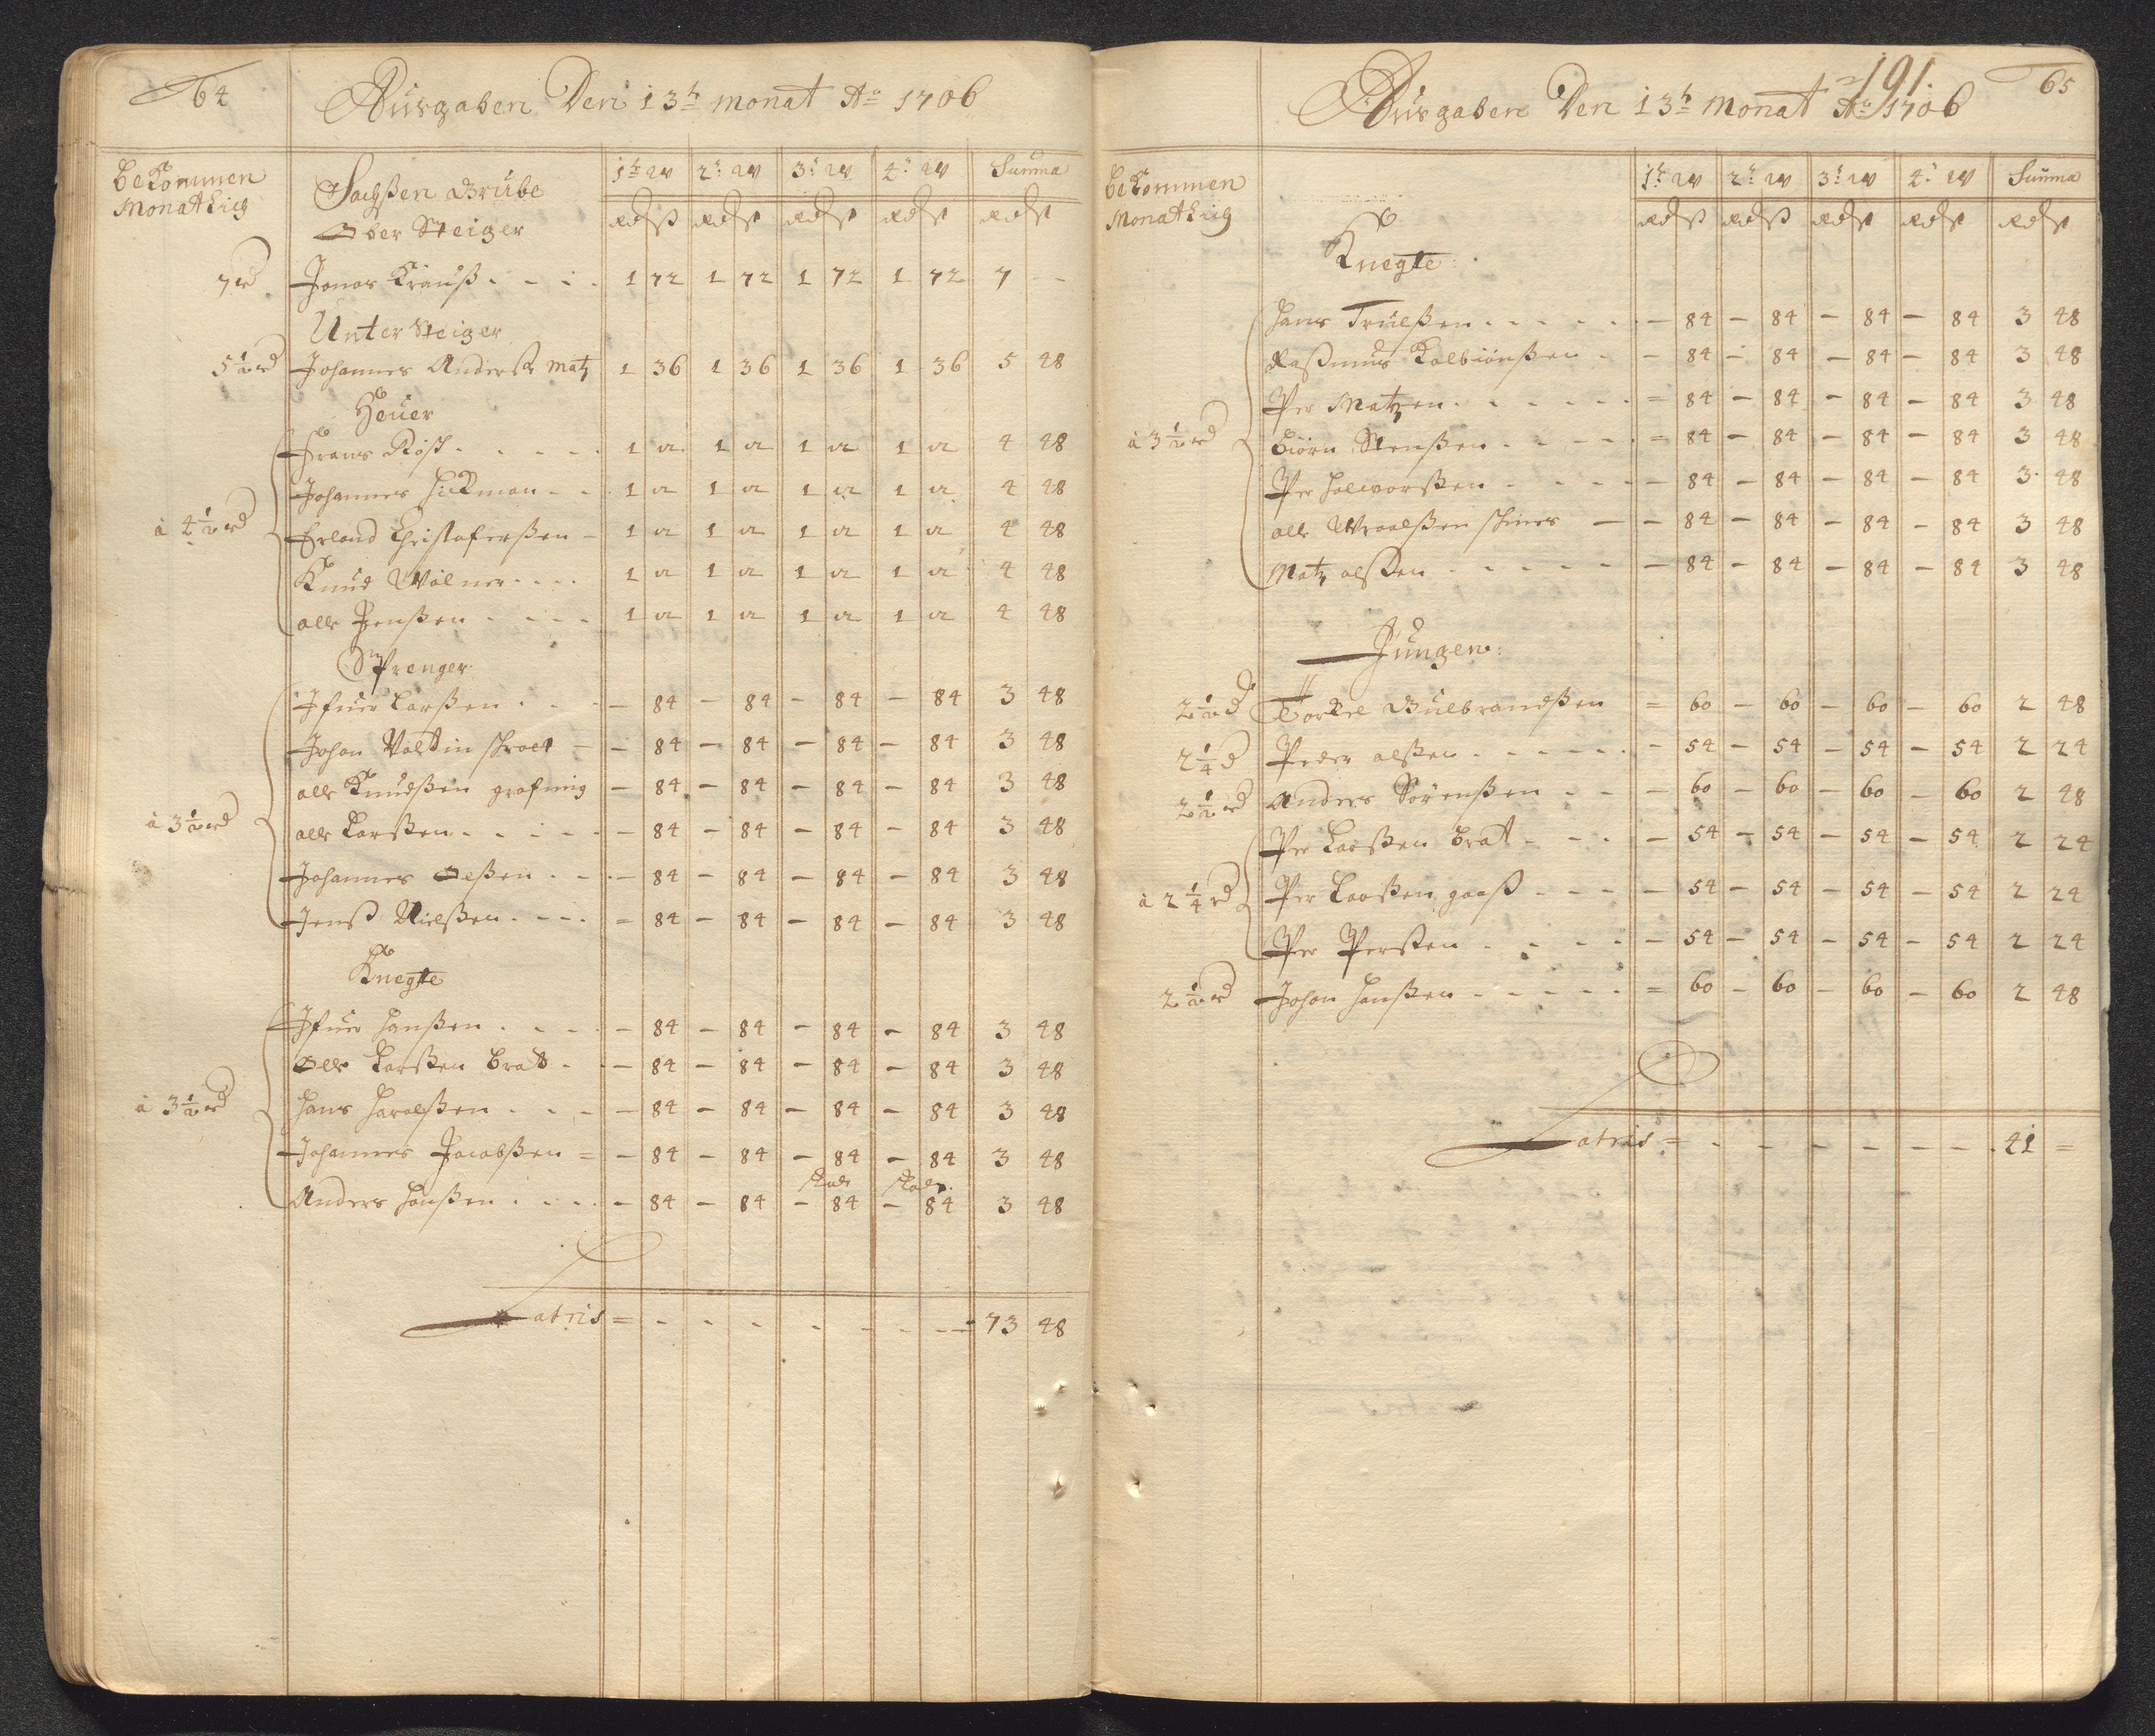 64
Ausgaben Den 13t monat Ao 1706
bekommen Monatlich
Sachßen Grube
1t W 2t W 3t W 4t W Summa
Ober Steiger
Rd ß Rd ß Rd ß Rd ß Rd ß
7 rd Jonas Krauß 1 72 1 72 1 72 1 72 7 -
Unter Steiger
5 1/2 rd Johannes Anderß Matz 1 36 1 36 1 36 1 36 5 48
Heuer
à 4 1/2 rd
Frans Röst 1 12 1 12 1 12 1 12 4 48
Johannes Hickman 1 12 1 12 1 12 1 12 4 48
Erland Christoferßen 1 12 1 12 1 12 1 12 4 48
Knud Wölner 1 12 1 12 1 12 1 12 4 48
olle Jenßen 1 12 1 12 1 12 1 12 4 48
Sprenger
à 3 1/2 rd
Ifuer Larßen - 84 - 84 - 84 - 84 3 48
Johan Valtin - 84 - 84 - 84 - 84 3 48
olle Knudßen - 84 - 84 - 84 - 84 3 48
olle Larßen - 84 - 84 - 84 - 84 3 48
Johannes Oelßen - 84 - 84 - 84 - 84 3 48
Jenß Nielßen = 84 - 84 - 84 - 84 3 48
Knegte
à 3 1/2 rd
Ifuer Hanßen - 84 - 84 - 84 - 84 3 48
Olle Larßen Brat - 84 - 84 - 84 - 84 3 48
Hans Haralßen - 84 - 84 - 84 - 84 3 48
Johannes Jacobßen = - 84 - 84 - 84 - 84 3 48
Anders Hanßen - 84 - 84 - 84 - 84 3 48
Latris = 73 48
191.
65
Ausgaben Den 13t Monat Ao 1706
bekommen Monatlich
1t W 2t W 3t W 4t W Summa
Rd ß Rd ß Rd ß Rd ß Rd ß
Knegte
à 3 1/2 rd
Hans Trulßen - 84 - 84 - 84 - 84 3 48
Raßmus Kolbiönßen - 84 - 84 - 84 - 84 3 48
Per Matzen = 84 - 84 - 84 - 84 3 48
Biörn Stenßen = 84 - 84 - 84 - 84 3 48
Per Halworßen - 84 - 84 - 84 - 84 3 48
olle Wroelßen - 84 - 84 - 84 - 84 3 48
Matz olßen - 84 - 84 - 84 - 84 3 48
Jungen:
2 1/2 d Torkel Gulbrandßen = 60 - 60 - 60 - 60 2 48
2 1/4 d Peder olßen - 54 - 54 - 54 - 54 2 24
2 1/2 rd Anders Sörenßen - 60 - 60 - 60 - 60 2 48
à 2 1/4 rd
Per Larßen Brat - 54 - 54 - 54 - 54 2 24
Per Larßen gaaß - 54 - 54 - 54 - 54 2 24
Per Perßen - 54 - 54 - 54 - 54 2 24
2 1/2 rd Johan Hanßen = 60 - 60 - 60 - 60 2 48
Latris = 41 =